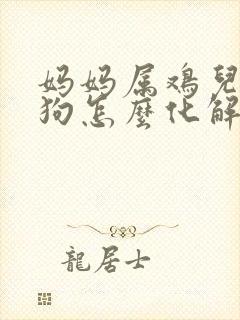 妈妈属鸡兒
狗怎麽化解
龍居士